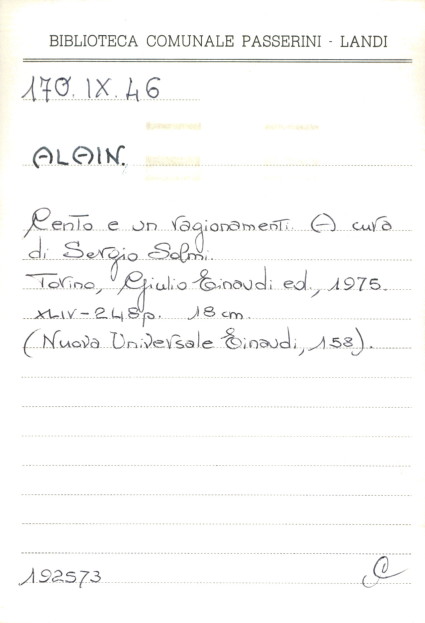 BIBLIOTECA COMUNALE PASSERINI - LANDI
170.IX.46
ALAIN.
Cento e un ragionamenti. A cura
di Sergio Solmi.
Torino, Giulio Einaudi ed., 1975.
XLIV-248p. 18 cm.
(Nuova Universale Einaudi, 158).
192573